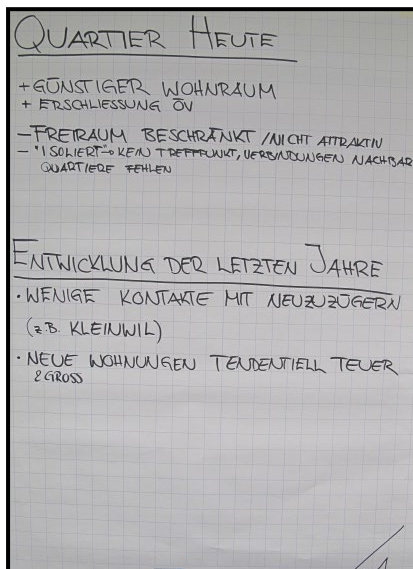 QUARTIER HEUTE
+ GÜNSTIGER WOHNRAUM
+ ERSCHLIESSUNG ÖV
- FREIRAUM BESCHRÄNKT / NICHT ATTRAKTIV
- "ISOLIERT" → KEIN TREFFPUNKT, VERBINDUNGEN NACHBAR
QUARTIERE FEHLEN
ENTWICKLUNG DER LETZTEN JAHRE
• WENIGE KONTAKTE MIT NEUZUZÜGERN
(z.B. KLEINWIL)
• NEUE WOHNUNGEN TENDENTIELL TEUER
& GROSS